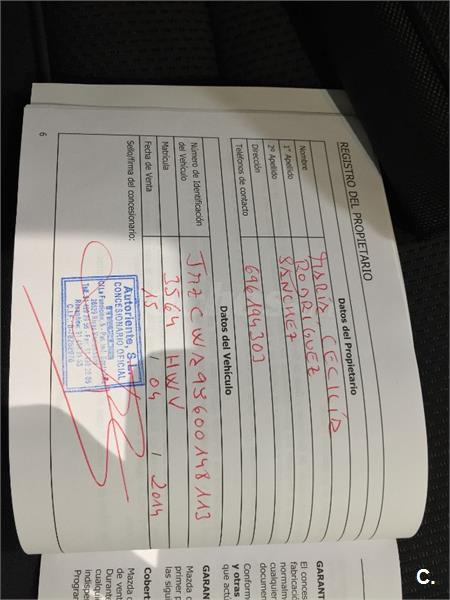 REGISTRO DEL PROPIETARIO
Datos del Propietario
Nombre MARÍA CECILIA
1º Apellido RODRIGUEZ
2º Apellido SANCHEZ
Dirección
Teléfonos de contacto 696194303
Datos del Vehículo
Número de Identificación
del Vehículo JMZCWA95600148113
Matrícula 3564 HWV
Fecha de Venta 15 / 04 / 2014
Sello/firma del concesionario:
Autoriente, S.L.
CONCESIONARIO OFICIAL
6
GARANT
El conces
fabricació
cualquier
document
Conform
y otras
que actú
GARAN
Mazda c
primer p
las sigui
Cobert
Mazda c
de vent
Durante
cualqui
indispe
Program
C.